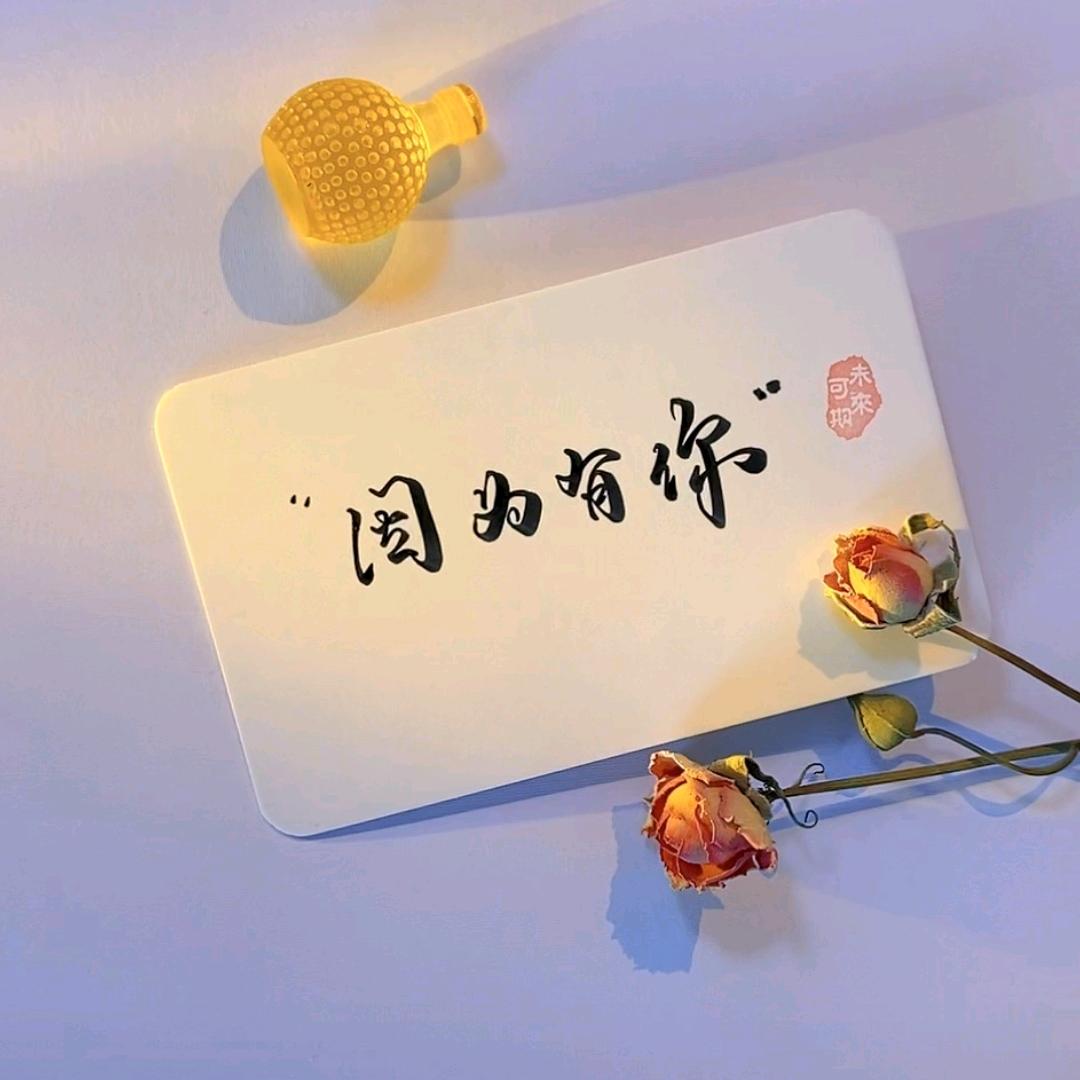 “因为有你”
未來
可期